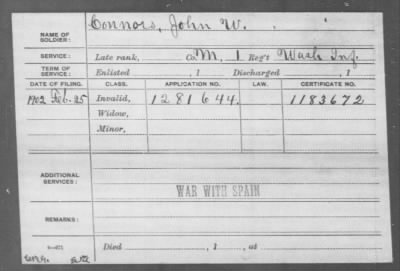 NAME OF SOLDIER: Connors, John W.
SERVICE: Late rank, Co. M, 1 Reg't Wash Inf.
TERM OF SERVICE: Enlisted , 1 Discharged , 1
DATE OF FILING. CLASS. APPLICATION NO. LAW. CERTIFICATE NO.
1902 Feb. 25 Invalid, 1281644. 1183672
Widow,
Minor,
ADDITIONAL SERVICES:
WAR WITH SPAIN
REMARKS:
Died , 1 , at